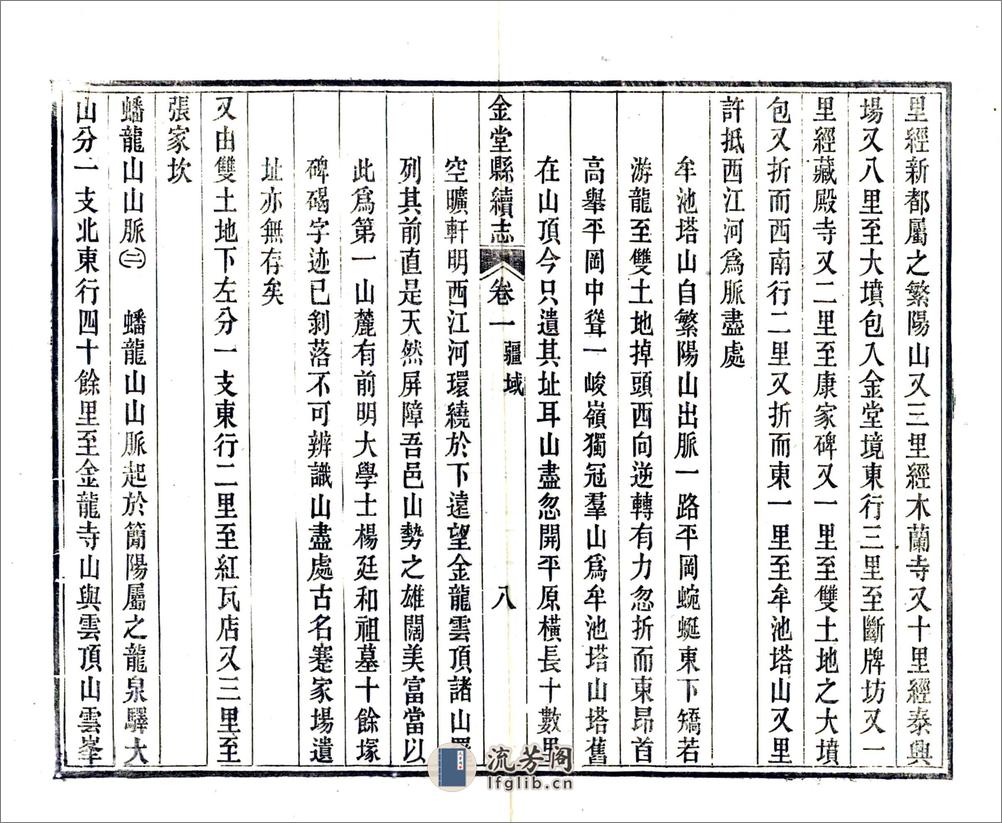 里經新都屬之繁陽山又三里經木蘭寺又十里經泰興
場又八里至大墳包入金堂境東行三里至斷牌坊又一
里經藏殿寺又二里至康家碑又一里至雙土地之大墳
包又折而西南行二里又折而東一里至牟池塔山又里
許抵西江河爲脈盡處
牟池塔山自繁陽山出脈一路平岡蜿蜒東下矯若
游龍至雙土地掉頭西向逆轉有力忽折而東昂首
高舉平岡中聳一峻嶺獨冠羣山爲牟池塔山塔舊
在山頂今只遺其址耳山盡忽開平原橫長十數里
金堂縣續志 卷一 疆域 八
空曠軒明西江河環繞於下遠望金龍雲頂諸山羅
列其前直是天然屏障吾邑山勢之雄闊美富當以
此爲第一山麓有前明大學士楊廷和祖墓十餘塚
碑碣字迹已剝落不可辨識山盡處古名蹇家場遺
址亦無存矣
又由雙土地下左分一支東行二里至紅瓦店又三里至
張家坎
蟠龍山山脈㊁ 蟠龍山山脈起於簡陽屬之龍泉驛大
山分一支北東行四十餘里至金龍寺山與雲頂山雲峯
流芳阁
lfglib.cn